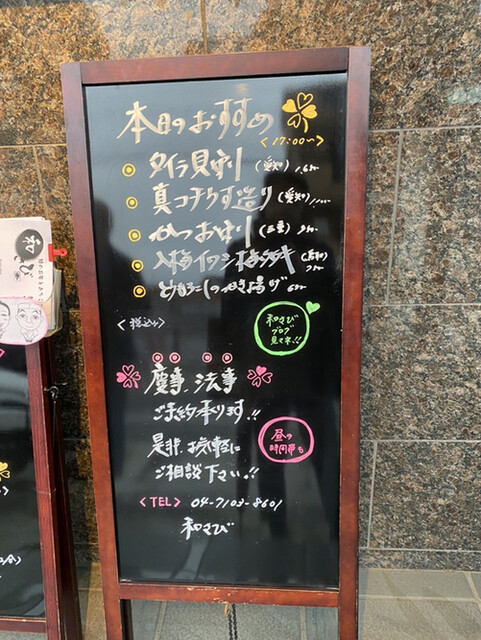 本日のおすすめ
<17:00〜>
タイラ貝刺(愛知)
真コチうす造り(愛知)
かつお刺(三重)
入梅イワシ梅タタキ
とうもろこしのかき揚げ
<税込>
和さび
ブログ
見てネ!!
慶事、法事
ご予約承ります!!
是非、お気軽に
ご相談下さい!!
昼の
時間帯も
<TEL> 04-7103-8601
和さび